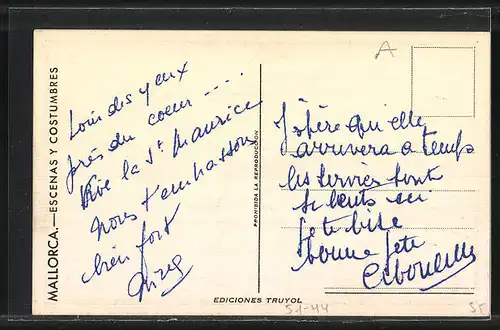 MALLORCA.—ESCENAS Y COSTUMBRES
Loin des yeux
près du coeur ....
Vive la St Maurice
nous t'embrassons
bien fort
A
J'espère qu'elle
arrivera a temps
les services sont
si lents ici
je te bise
bonne fête
PROHIBIDA LA REPRODUCCIÓN
EDICIONES TRUYOL
51-44